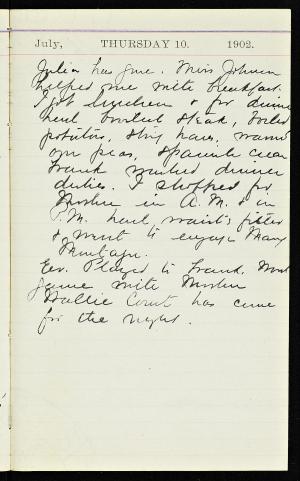 July, THURSDAY 10. 1902.
Julia has gone. Miss Johnson
helped me with breakfast.
I got luncheon & for dinner
had broiled steak, boiled
potatoes, warmed
up peas, spanish cream
Frank washed dinner
dishes. I shopped for
Mother in A.M. & in
P.M. had waists fitted
& went to engage Mary
Eve. Played to Frank. Had
game with Mother
Hallie Court has come
for the night.